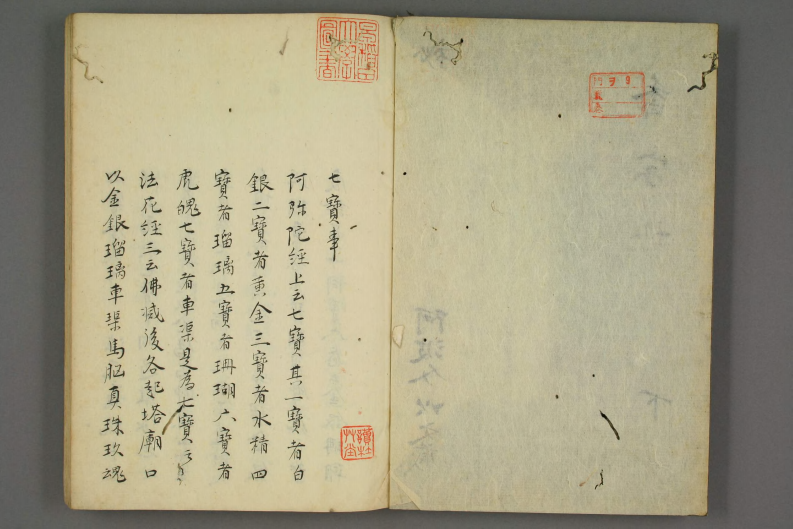 七寳事
阿弥陀経上云七寳其一寳者白
銀二寳者黄金三寳者水精四
寳者瑠璃五寳者珊瑚六寳者
虎魄七寳者車渠是為七寳云々
法花経三云佛滅後各起塔廟口
以金銀瑠璃車渠馬脳真珠玫瑰